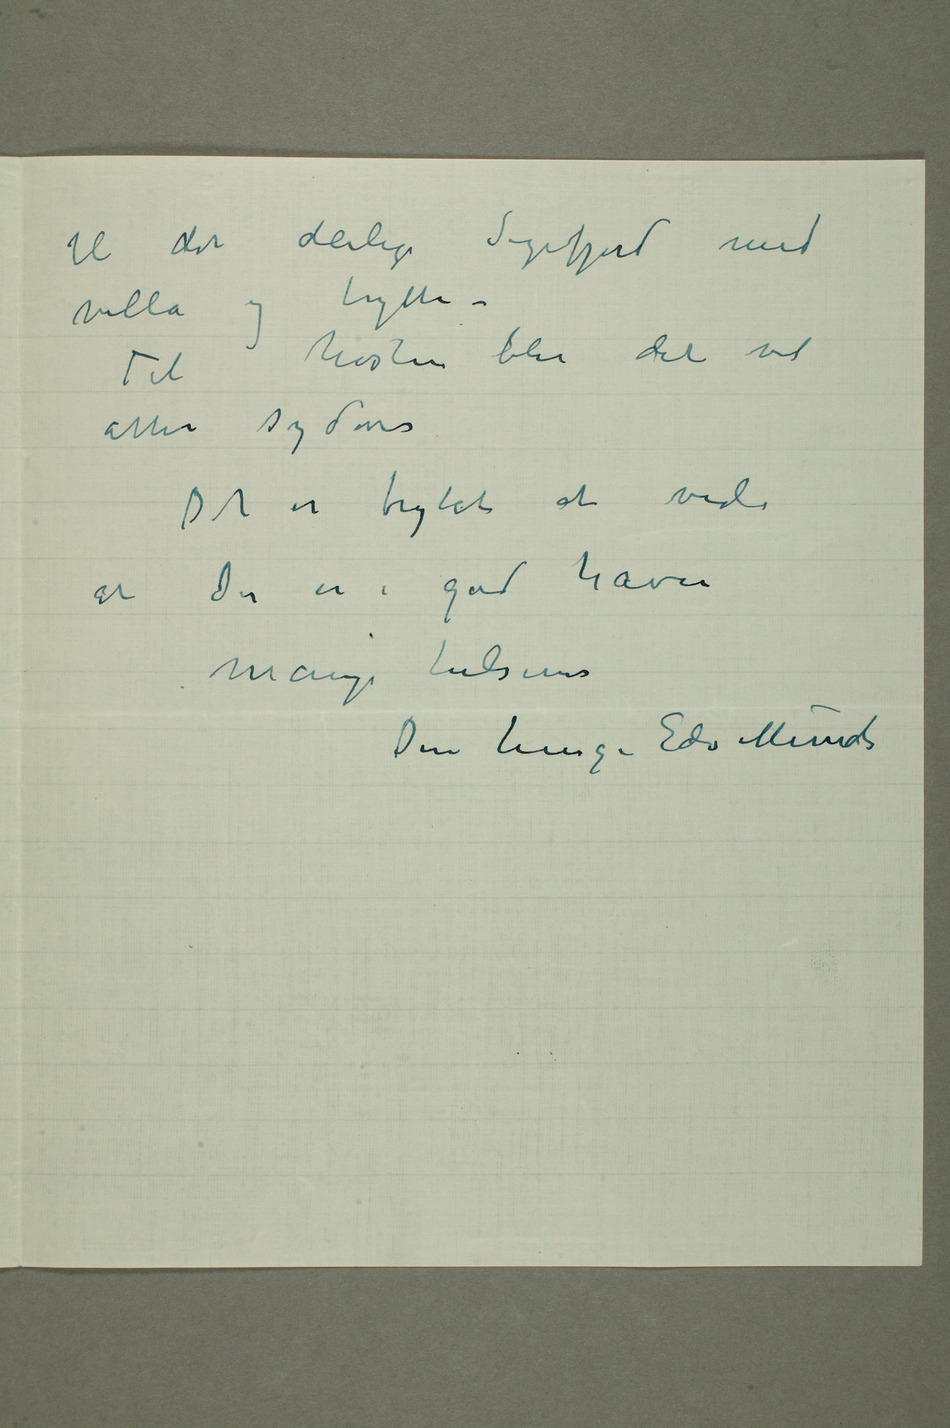 til det deilige Sigefjord med
villa og hytte –
Til høsten blir det vel
atter sydover
Det er hyggeligt at vide
at De er i god havn
mange hilsener
Din hengivne Edv Munch